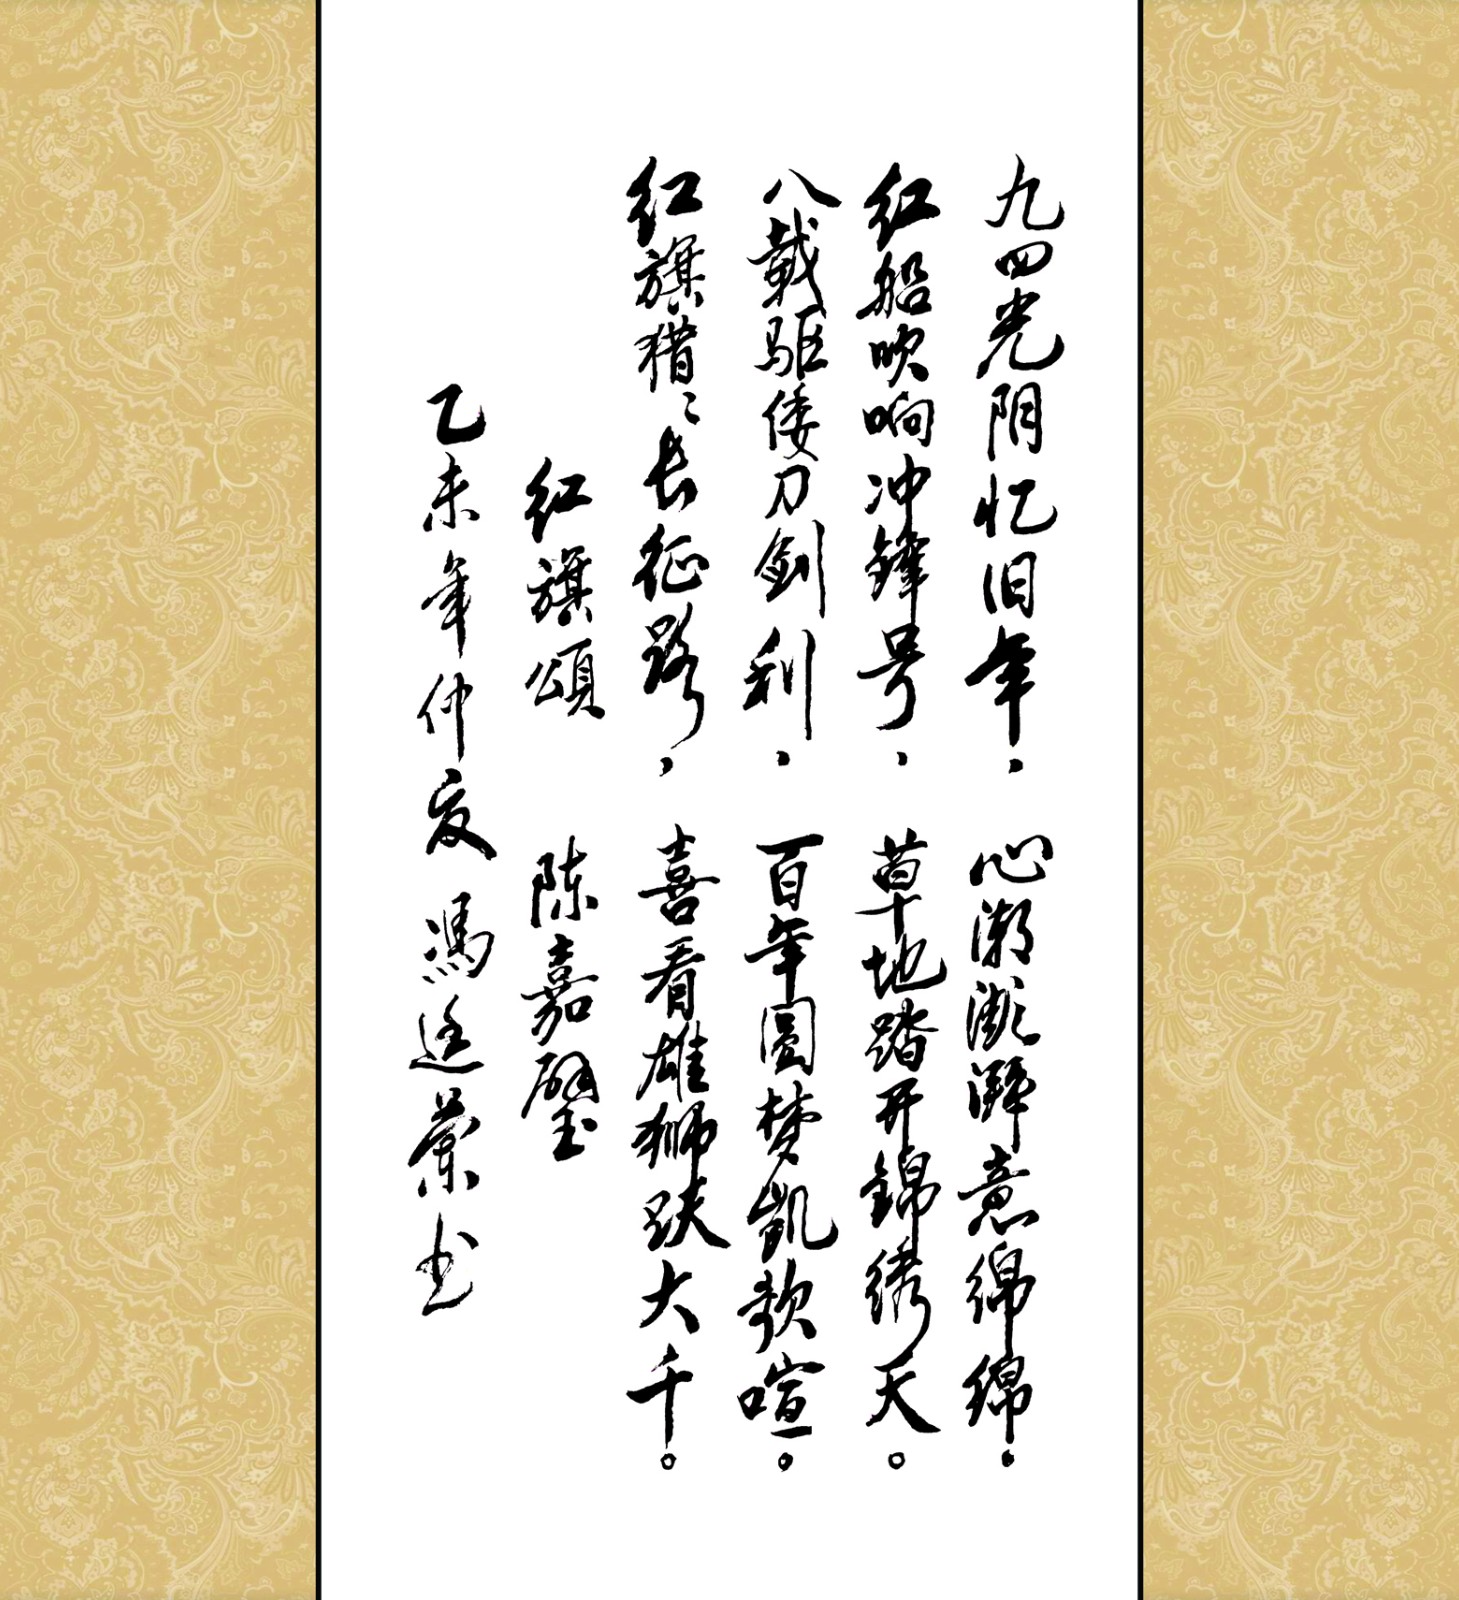 九四光阴忆旧年，心潮澎湃意绵绵。
红船吹响冲锋号，草地踏开锦绣天。
八载驱倭刀剑利，百年圆梦凯歌喧。
红旗猎猎长征路，喜看雄狮跃大千。
红旗颂 陈嘉璧
乙未年仲夏 冯 兰书